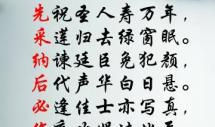 先祝圣人寿万年，
采莲归去绿窗眠。
纳谏廷臣免犯颜，
后代声华白日悬。
必逢佳士亦写真，